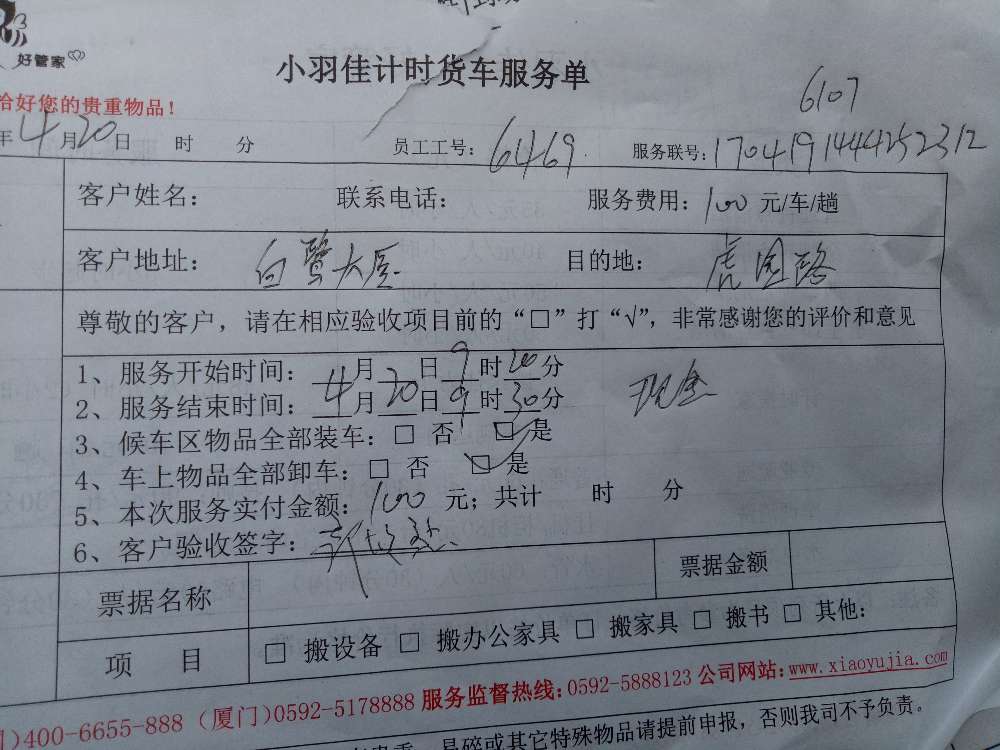 好管家
小羽佳计时货车服务单
6107
恰好您的贵重物品！
年4月20日 时 分 员工工号：6469 服务联号：1704191444252312
客户姓名： 联系电话： 服务费用：100元/车/趟
客户地址：白鹭大厦 目的地：虎园路
尊敬的客户，请在相应验收项目前的“□”打“√”，非常感谢您的评价和意见
1、服务开始时间：4月20日9时20分
2、服务结束时间：4月20日9时30分 现金
3、候车区物品全部装车：□ 否 ☑是
4、车上物品全部卸车：□ 否 ☑是
5、本次服务实付金额：100元；共计 时 分
6、客户验收签字：
票据名称 票据金额
项 目 □ 搬设备 □ 搬办公家具 □ 搬家具 □ 搬书 □ 其他：
)400-6655-888（厦门)0592-5178888 服务监督热线：0592-5888123 公司网站：www.xiaoyujia.com
易碎或其它特殊物品请提前申报，否则我司不予负责。